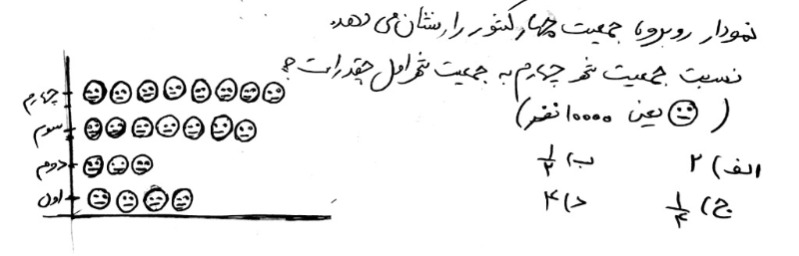 نمودار روبرو، جمعیت چهار کشور را نشان می دهد.
نسبت جمعیت شهر چهارم به جمعیت شهر اول چقدر است؟
( یعنی ۱۰۰۰۰ نفر)
الف) ۲ ب) ۱/۲
ج) ۱/۴ د) ۴
چهارم
سوم
دوم
اول